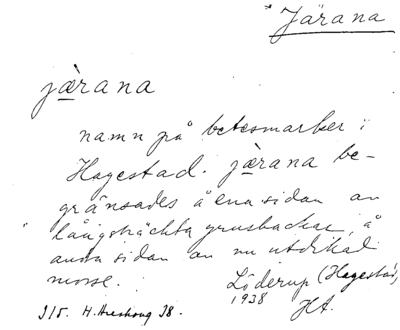 Järana
jærana
namn på betesmarker i
Hagestad. jærana be-
gränsades å ena sidan av
långsträckta grusbackar, å
andra sidan av nu utdikad
mosse.
Löderup (Hagestad)
1938
HA.
315. H. Areskoug 38.